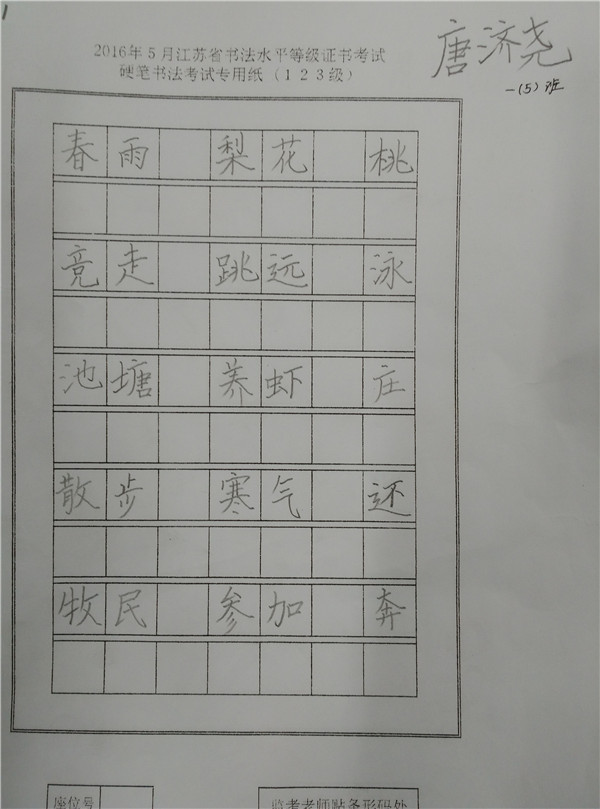 唐济尧
一(5)班
2016年5月江苏省书法水平等级证书考试
硬笔书法考试专用纸(123级)
春雨 梨花 桃
竞走 跳远 泳
池塘 养虾 庄
散步 寒气 还
牧民 参加 奔
座位号 监考老师贴条形码处